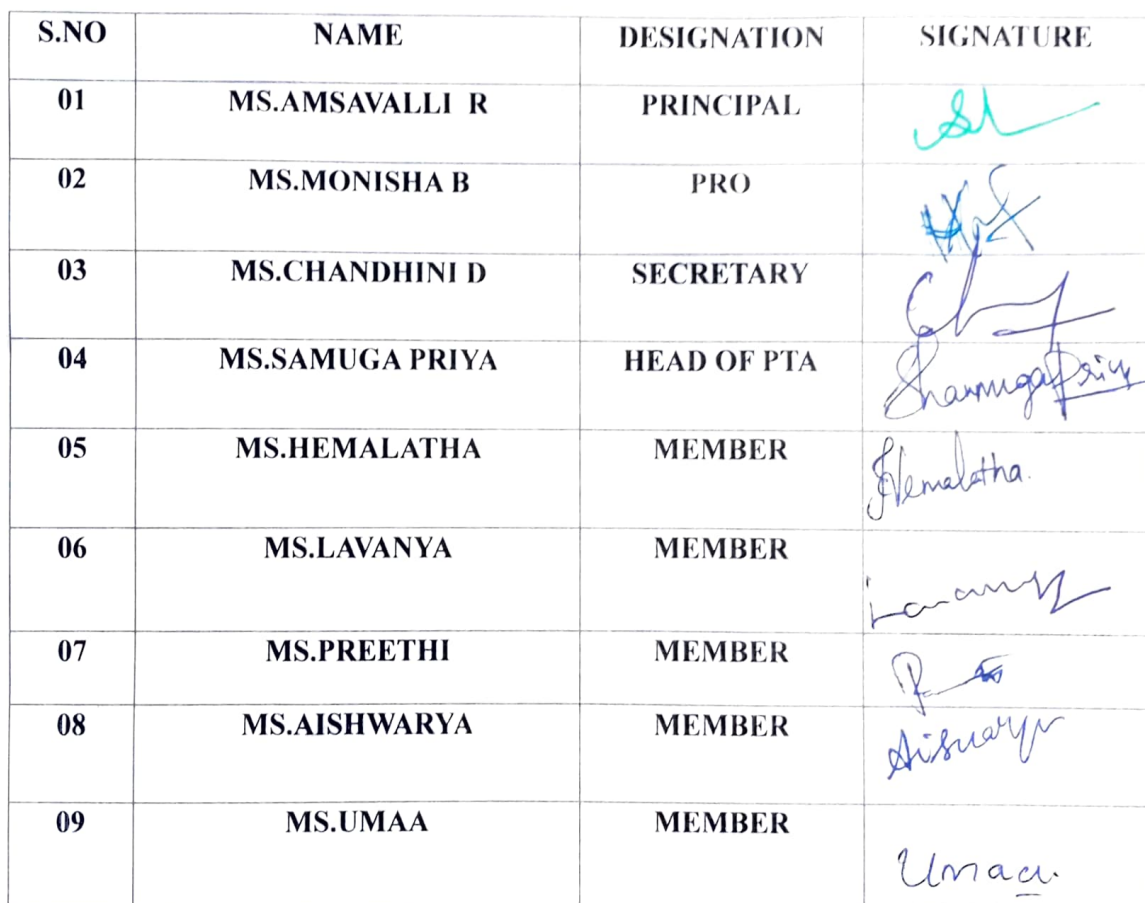 S.NO NAME DESIGNATION SIGNATURE
01 MS.AMSAVALLI R PRINCIPAL
02 MS.MONISHA B PRO
03 MS.CHANDHINI D SECRETARY
04 MS.SAMUGA PRIYA HEAD OF PTA ShanmugaPriya
05 MS.HEMALATHA MEMBER Hemalatha.
06 MS.LAVANYA MEMBER
07 MS.PREETHI MEMBER
08 MS.AISHWARYA MEMBER
09 MS.UMAA MEMBER Umaa.